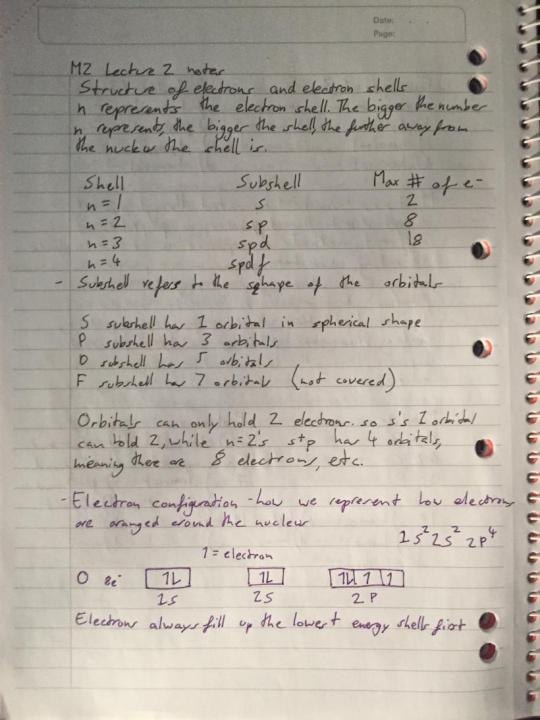 Date:
Page:
M2 Lecture 2 notes
Structure of electrons and electron shells
n represents the electron shell. The bigger the number
n represents, the bigger the shell, the further away from
the nucleus the shell is.
Shell Subshell Max # of e-
n = 1 s 2
n = 2 s p 8
n = 3 spd 18
n = 4 spdf
- Subshell refers to the shape of the orbitals
S subshell has 1 orbital in spherical shape
P subshell has 3 orbitals
D subshell has 5 orbitals
F subshell has 7 orbitals (not covered)
Orbitals can only hold 2 electrons. so s's 1 orbital
can hold 2, while n=2's s+p has 4 orbitals,
meaning there are 8 electrons, etc.
- Electron configuration - how we represent how electrons
are arranged around the nucleus
1s² 2s² 2p⁴
1 = electron
O 8e⁻ 1L 1L 1L 1 1
2s 2s 2p
Electrons always fill up the lowest energy shells first